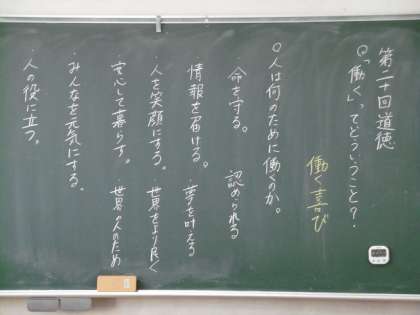 第二十回道徳
◎「働く」ってどういうこと?
働く喜び
○人は何のために働くのか。
・命を守る。
認められる
・情報を届ける。
・夢を叶える
・人を笑顔にする。
世界をより良く
・安心して暮らす。
・世界の人のため
・みんなを元気にする。
・人の役に立つ。